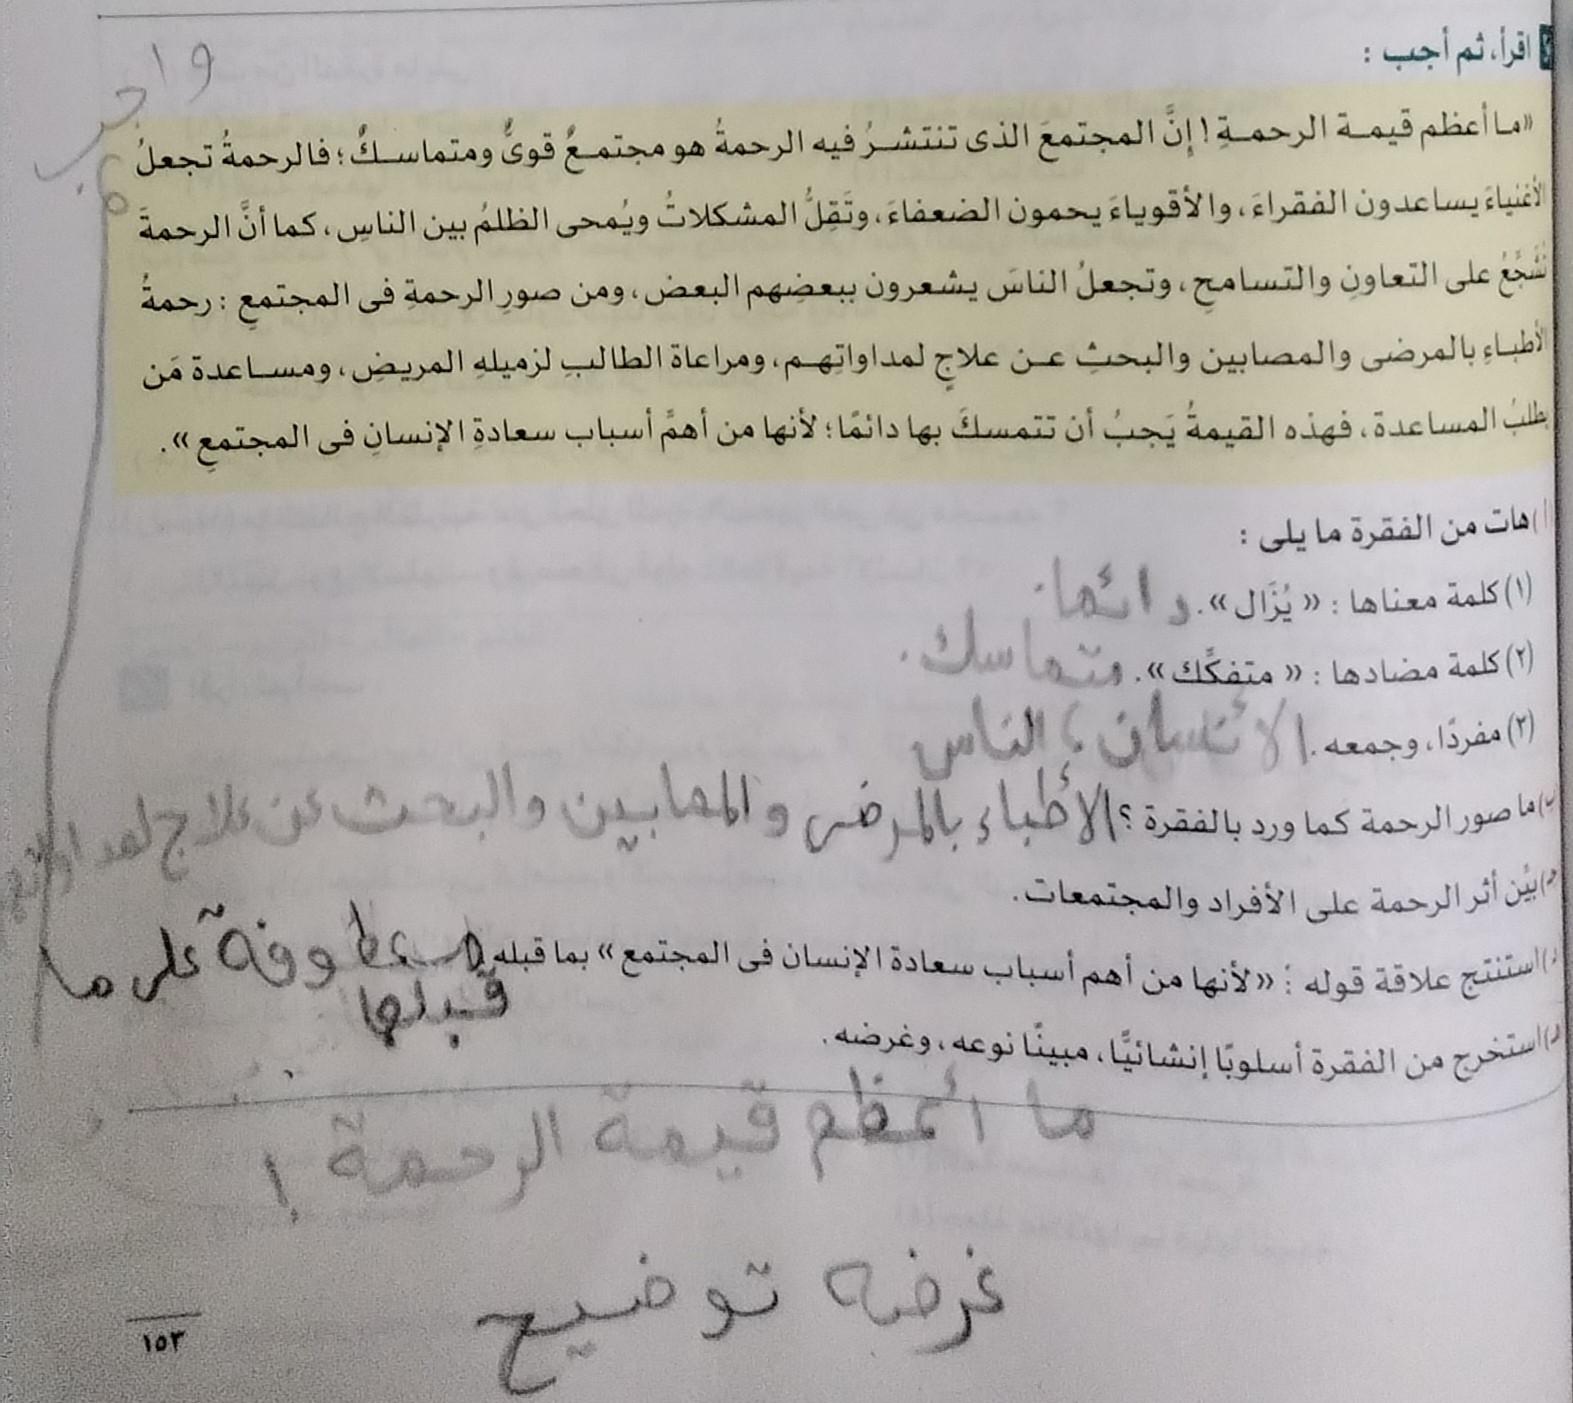 اقرأ، ثم أجب :
واجب
«ما أعظم قيمة الرحمةِ ! إنَّ المجتمعَ الذى تنتشرُ فيه الرحمةُ هو مجتمعٌ قوىٌّ ومتماسكٌ ؛ فالرحمةُ تجعلُ
الأغنياءَ يساعدون الفقراءَ، والأقوياءَ يحمون الضعفاءَ، وتَقِلُّ المشكلاتُ ويُمحى الظلمُ بين الناسِ، كما أنَّ الرحمةَ
تُشَجِّعُ على التعاونِ والتسامحِ، وتجعلُ الناسَ يشعرون ببعضِهم البعض، ومن صورِ الرحمةِ فى المجتمعِ : رحمةُ
الأطباءِ بالمرضى والمصابين والبحثِ عن علاجٍ لمداواتِهم، ومراعاة الطالبِ لزميلهِ المريضِ، ومساعدة مَن
يطلبُ المساعدة، فهذه القيمةُ يَجبُ أن تتمسكَ بها دائمًا ؛ لأنها من أهمِّ أسباب سعادةِ الإنسانِ فى المجتمعِ».
(أ) هات من الفقرة ما يلى :
(١) كلمة معناها : « يُزَال». دائما.
(٢) كلمة مضادها : « متفكِّك». متماسك.
(٣) مفردًا، وجمعه. الأنسان، الناس
(ب) ما صور الرحمة كما ورد بالفقرة ؟ الأطباء بالمرضى والمصابين والبحث عن علاج لمداواتهم
(جـ) بيِّن أثر الرحمة على الأفراد والمجتمعات.
(د) استنتج علاقة قوله : «لأنها من أهم أسباب سعادة الإنسان فى المجتمع» بما قبله. معطوفة على ما
قبلها
(هـ) استخرج من الفقرة أسلوبًا إنشائيًّا، مبينًا نوعه، وغرضه.
ما أعظم قيمة الرحمة !
غرضه توضيح
١٥٣